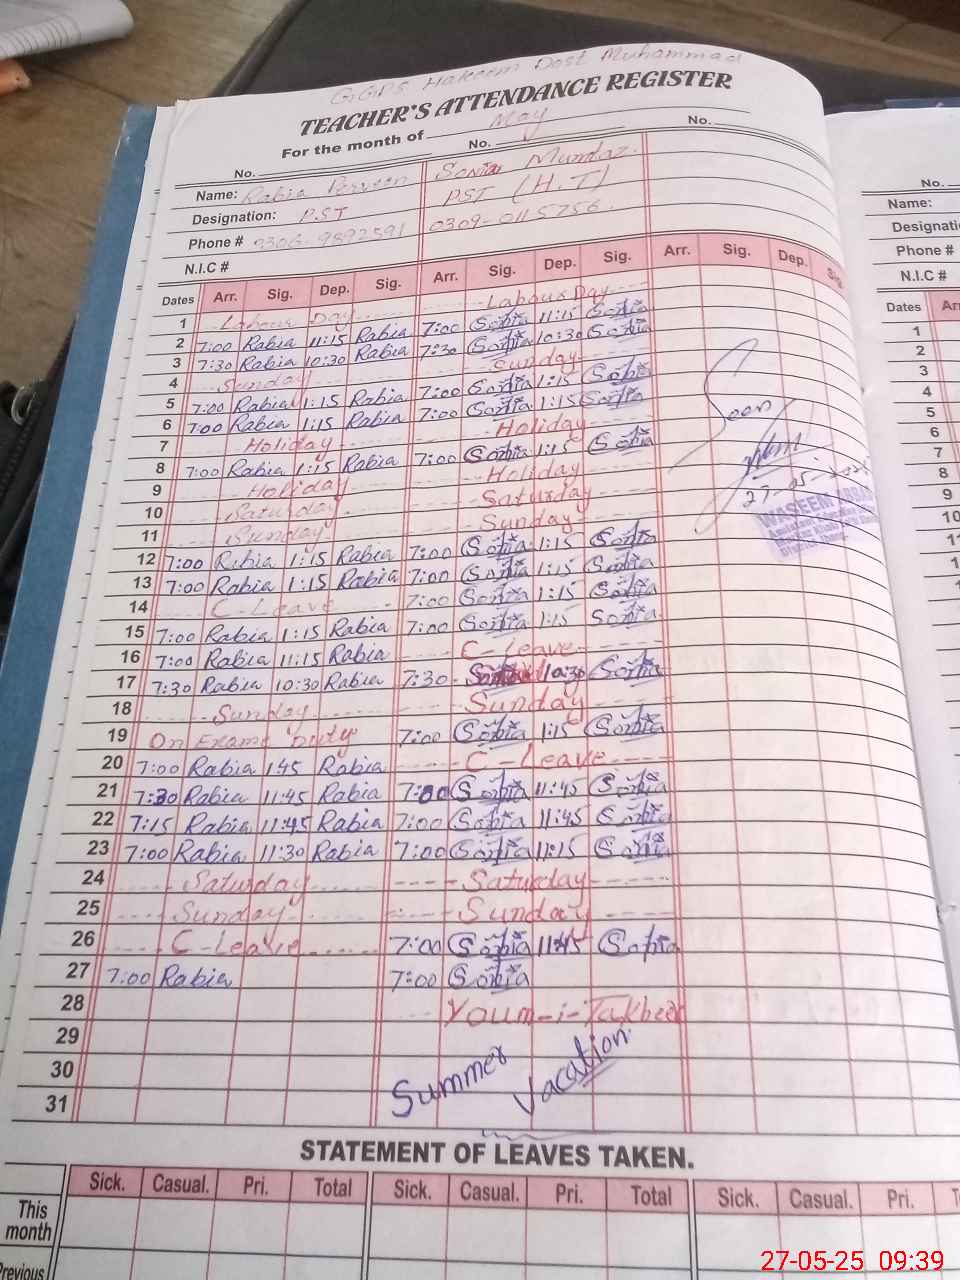 GGPS Hakeem Dost Muhammad
TEACHER'S ATTENDANCE REGISTER
For the month of May
No. No. No.
Name: Rabia Perveen Sonia Mumtaz.
Designation: PST PST (H.T)
Phone # 0306-9892591 0309-0115756.
N.I.C #
Dates Arr. Sig. Dep. Sig. Arr. Sig. Dep. Sig. Arr. Sig. Dep. Sig.
1 Labour Day Labour Day
2 7:00 Rabia 11:15 Rabia 7:00 Sonia 11:15 Sonia
3 7:30 Rabia 10:30 Rabia 7:30 Sonia 10:30 Sonia
4 Sunday Sunday
5 7:00 Rabia 1:15 Rabia 7:00 Sonia 1:15 Sonia
6 7:00 Rabia 1:15 Rabia 7:00 Sonia 1:15 Sonia
7 Holiday Holiday
8 7:00 Rabia 1:15 Rabia 7:00 Sonia 1:15 Sonia
9 Holiday Holiday
10 Saturday Saturday
11 Sunday Sunday
12 7:00 Rabia 1:15 Rabia 7:00 Sonia 1:15 Sonia
13 7:00 Rabia 1:15 Rabia 7:00 Sonia 1:15 Sonia
14 C-Leave 7:00 Sonia 1:15 Sonia
15 7:00 Rabia 1:15 Rabia 7:00 Sonia 1:15 Sonia
16 7:00 Rabia 11:15 Rabia C-Leave
17 7:30 Rabia 10:30 Rabia 7:30 10:30 Sonia
18 Sunday Sunday
19 On Exams Duty 7:00 Sonia 1:15 Sonia
20 7:00 Rabia 1:45 Rabia C-Leave
21 7:30 Rabia 11:45 Rabia 7:00 Sonia 11:45 Sonia
22 7:15 Rabia 11:45 Rabia 7:00 Sonia 11:45 Sonia
23 7:00 Rabia 11:30 Rabia 7:00 Sonia 11:15 Sonia
24 Saturday Saturday
25 Sunday Sunday
26 C-Leave 7:00 Sonia 11:45 Sonia
27 7:00 Rabia 7:00 Sonia
28 Youm-i-Takbeer
29
30 Summer Vacation.
31
Seen
27-05-2025
WASEEM ABBAS
STATEMENT OF LEAVES TAKEN.
Sick. Casual. Pri. Total Sick. Casual. Pri. Total Sick. Casual. Pri.
This month
Previous
No.
Name:
Phone #
N.I.C #
Dates
1
2
3
4
5
6
7
8
9
10
27-05-25 09:39